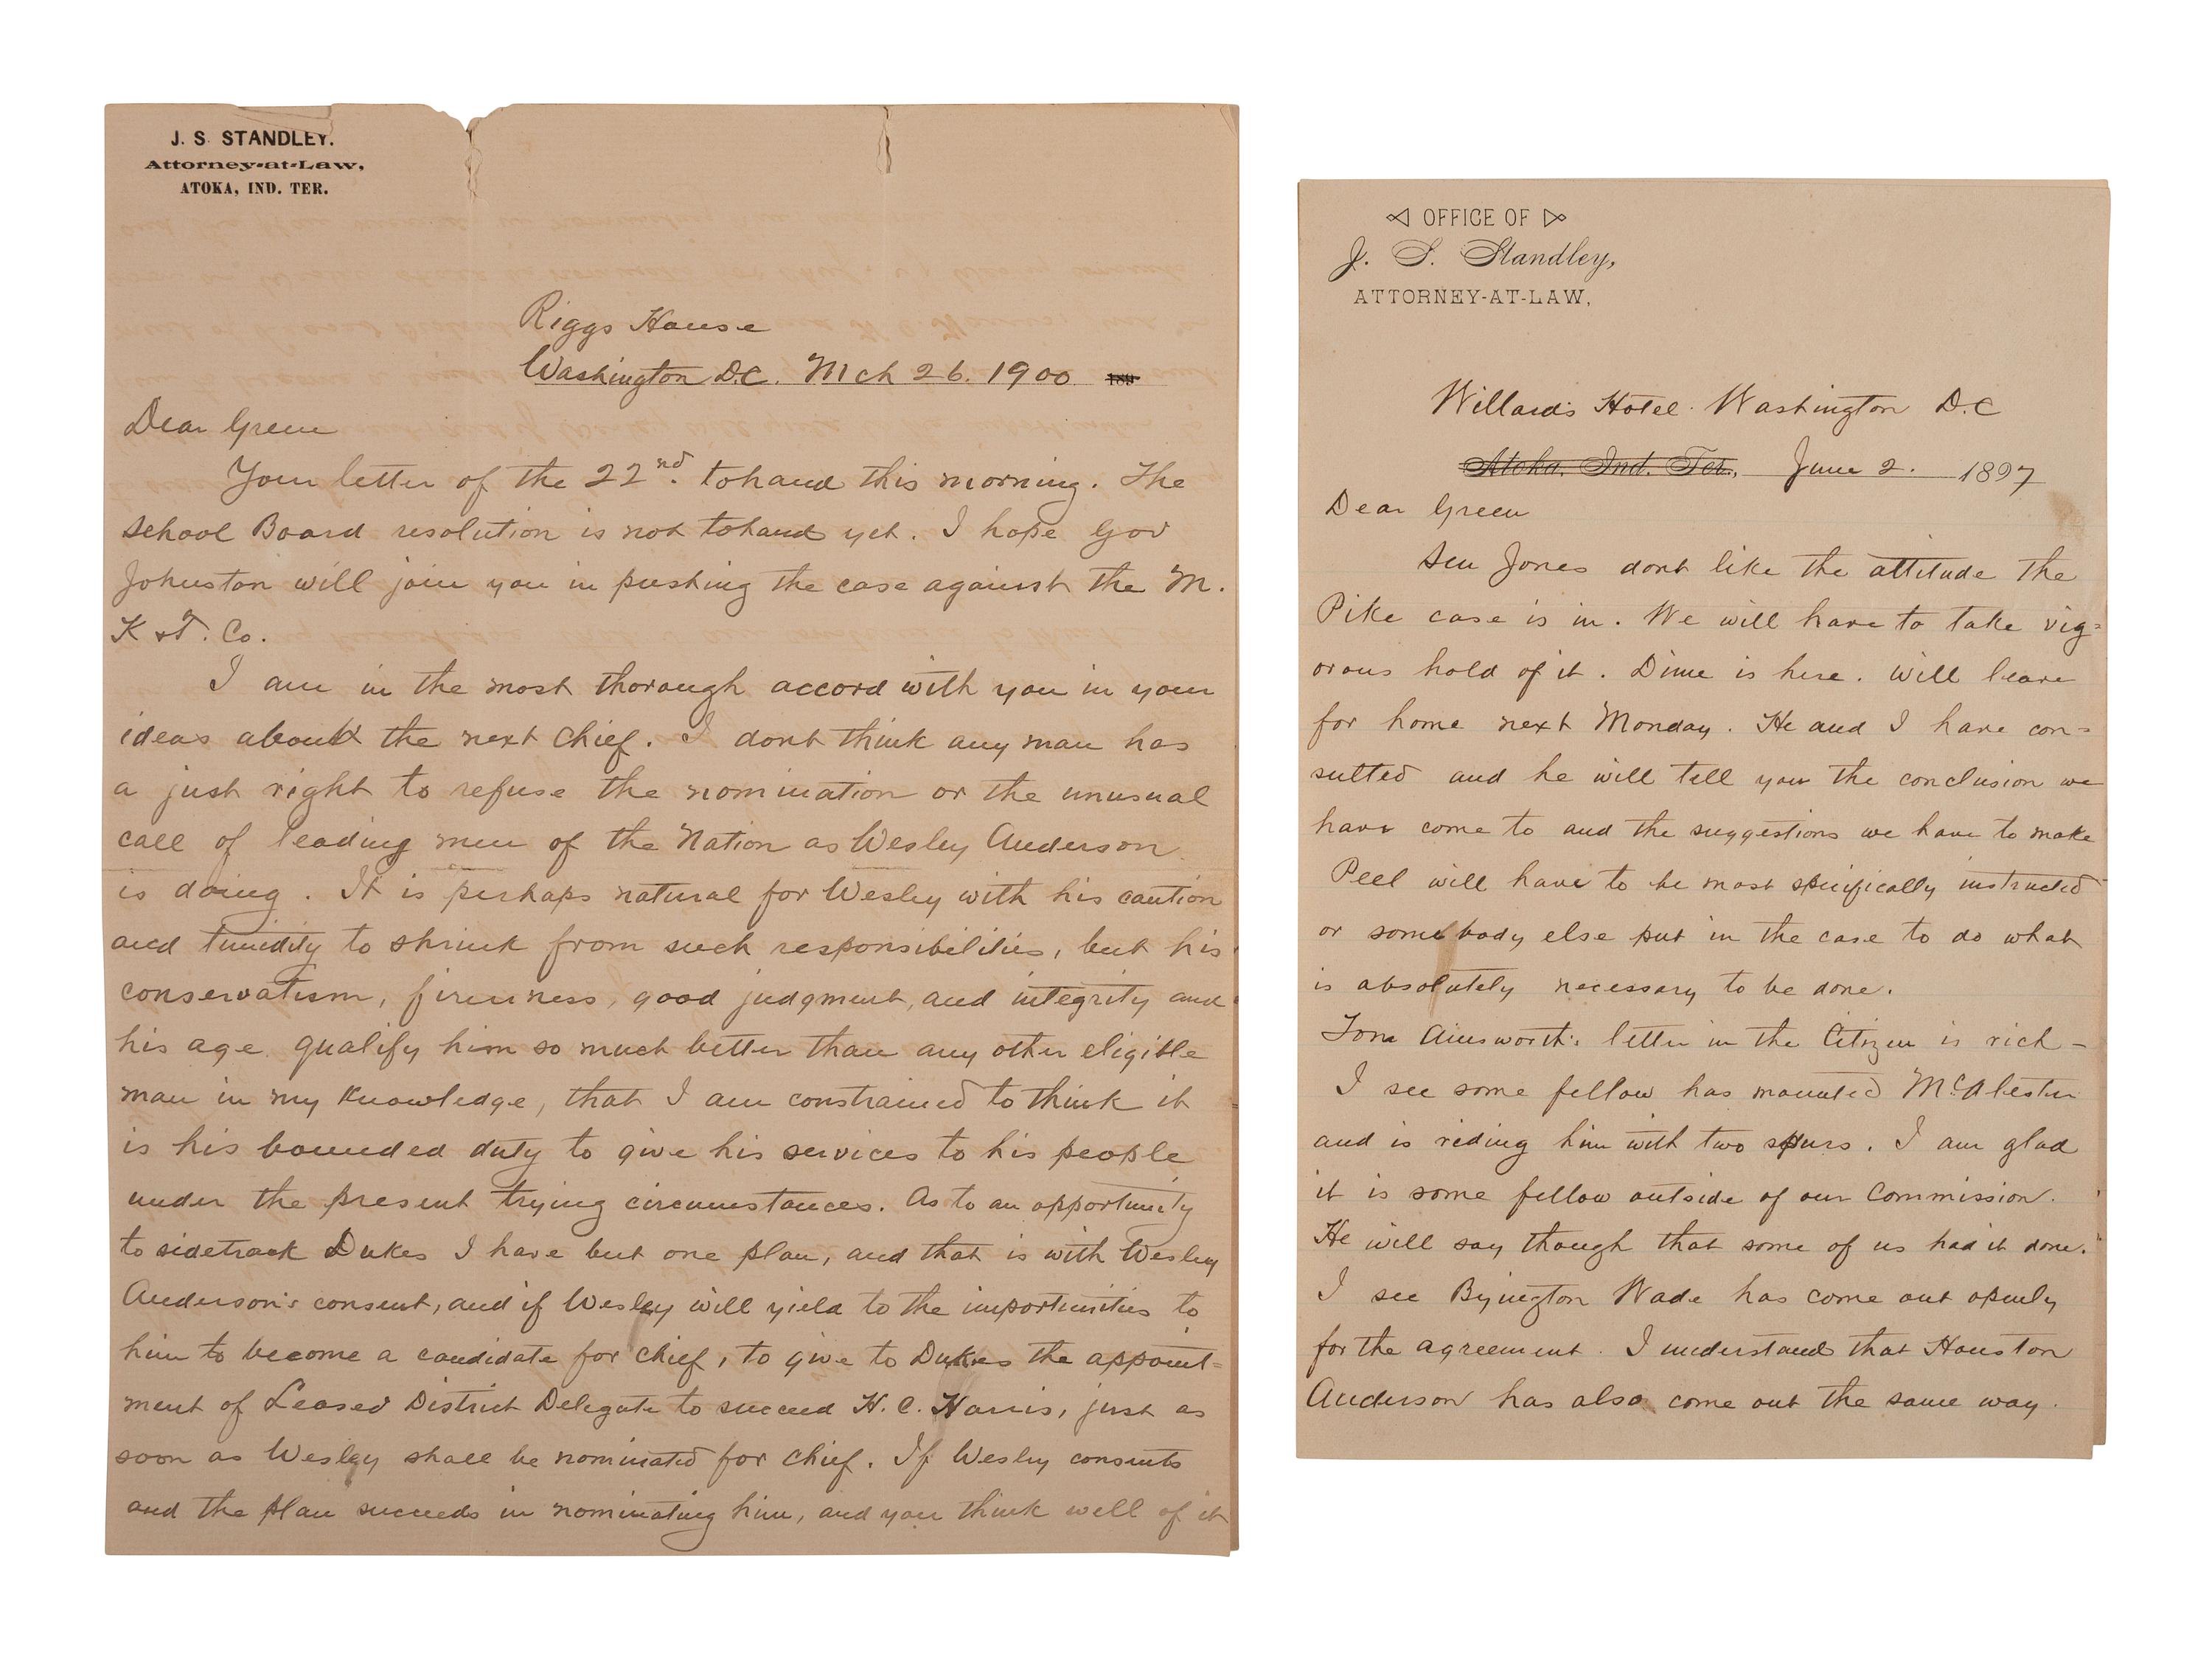 J. S. STANDLEY.
Attorney-at-Law,
ATOKA, IND. TER.
Riggs House
Washington D.C. Mch 26. 1900 189
Dear Green
Your letter of the 22nd. tohand this morning. The
School Board resolution is not tohand yet. I hope Gov
Johnston will join you in pushing the case against the M.
K & T. Co.
I am in the most thorough accord with you in your
ideas about the next Chief. I dont think any man has
a just right to refuse the nomination or the unusual
call of leading men of the Nation as Wesley Anderson
is doing. It is perhaps natural for Wesley with his caution
and timidity to shrink from such responsibilities, but his
conservatism, firmness, good judgment, and integrity and
his age qualify him so much better than any other eligible
man in my knowledge, that I am constrained to think it
is his bounded duty to give his services to his people
under the present trying circumstances. As to an opportunity
to sidetrack Dukes I have but one plan, and that is with Wesley
Anderson's consent, and if Wesley will yield to the importunities to
him to become a candidate for Chief, to give to Dukes the appoint=
ment of Leased District Delegate to succeed H. C. Harris, just as
soon as Wesley shall be nominated for Chief. If Wesley consents
and the plan succeeds in nominating him, and you think well of it
OFFICE OF
J. S. Standley,
ATTORNEY-AT-LAW,
Willard's Hotel. Washington D.C
Atoka, Ind. Ter., June 2. 1897
Dear Green
Sen Jones dont like the attitude the
Pike case is in. We will have to take vig=
orous hold of it. Dime is here. Will leave
for home next Monday. He and I have con=
sulted and he will tell you the conclusion we
have come to and the suggestions we have to make
Peel will have to be most specifically instructed
or somebody else put in the case to do what
is absolutely necessary to be done.
Tom Ainsworth's letter in the Citizen is rich -
I see some fellow has mounted McAlester
and is riding him with two spurs. I am glad
it is some fellow outside of our Commission.
He will say though that some of us had it done.
I see Byington Wade has come out openly
for the agreement. I understand that Houston
Anderson has also come out the same way.